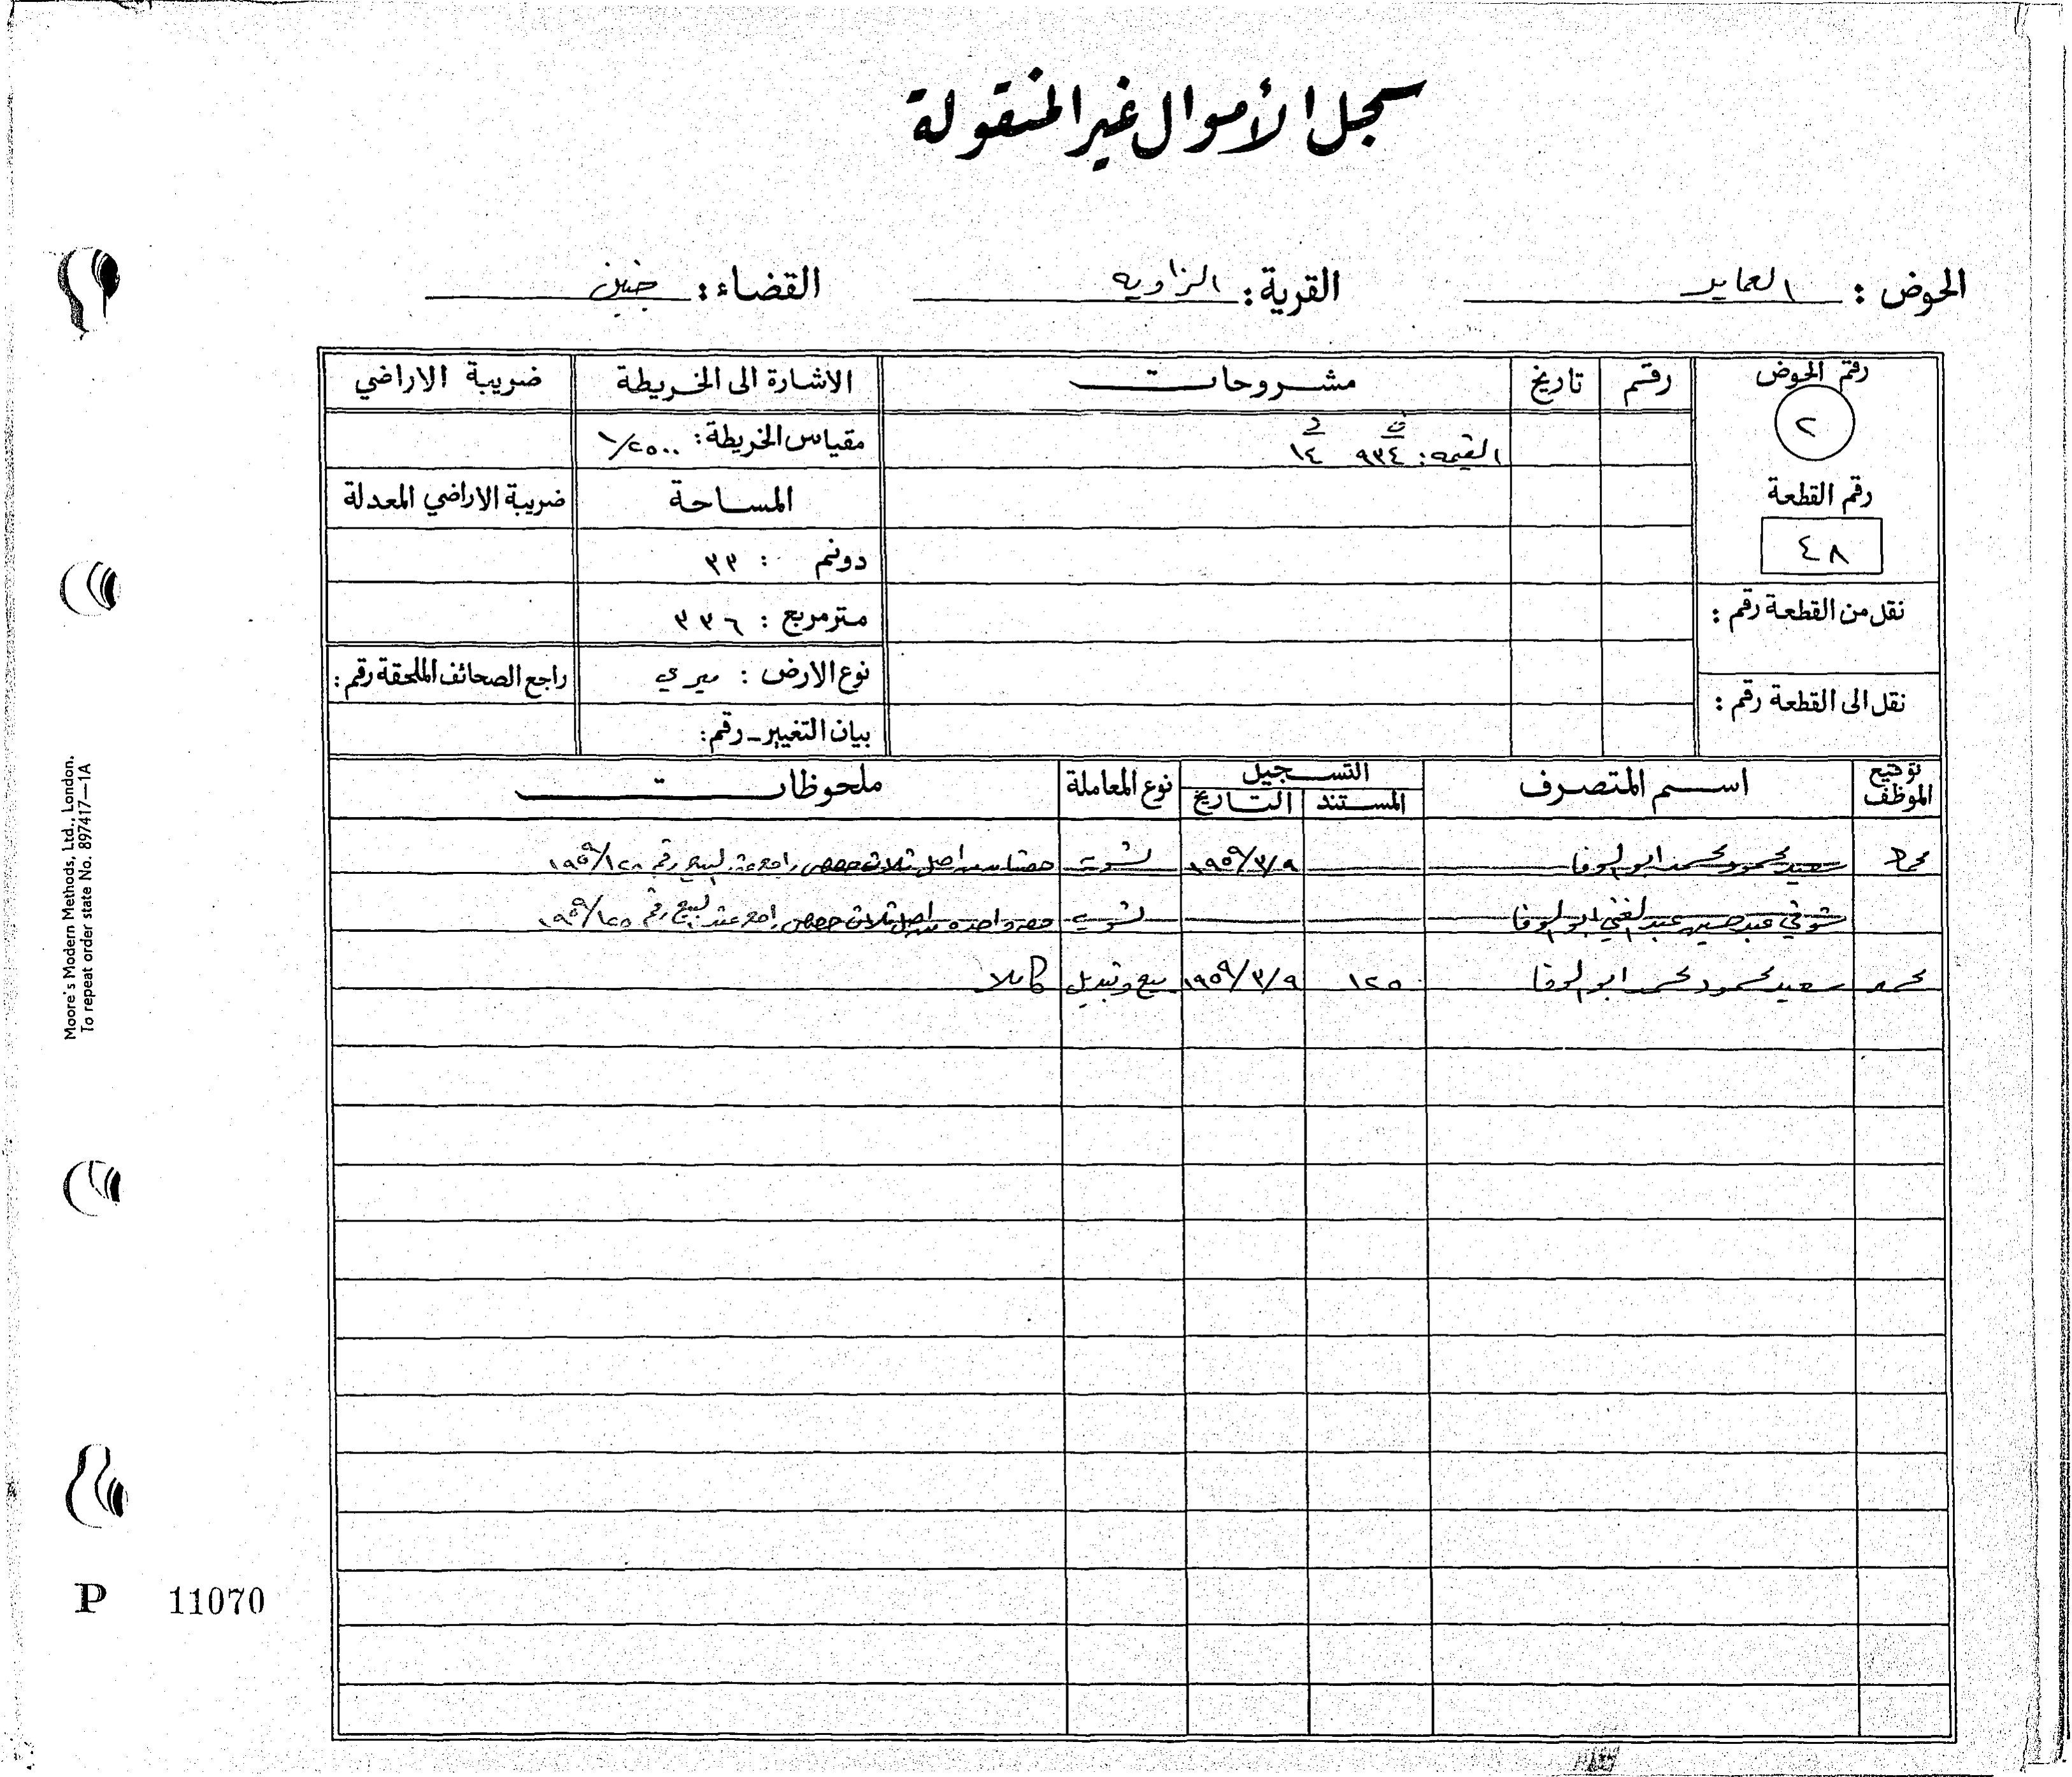 سجل الأموال غير المنقولة
الحوض : العمايد القرية : الزاويه القضاء : جنين
رقم الحوض رقم تاريخ مشروحات الاشارة الى الخريطة ضريبة الاراضي
٢
ف د
القيمه : ٩٣٤ ١٤
مقياس الخريطة : ١/٢٥٠٠
رقم القطعة المساحة ضريبة الاراضي المعدلة
٤٨
دونم : ٣٣
نقل من القطعة رقم :
متر مربع : ٣٣٦
نوع الارض : ميري راجع الصحائف الملحقة رقم :
نقل الى القطعة رقم :
بيان التغيير - رقم :
توقيع الموظف اسم المتصرف التسجيل نوع المعاملة ملحوظات
المستند التاريخ
سعيد محمود محمد ابو الوفا ١٩٥٩/٣/٩ تسوية حصتان من اصل ثلاث حصص راجع عقد البيع رقم
شوقي عبد حسين عبد الغني ابو الوفا تسوية حصه واحده من اصل ثلاث حصص راجع عقد البيع رقم ١٩٥٩/١٢٥
محمد سعيد محمود محمد ابو الوفا ١٢٥ ١٩٥٩/٣/٩ بيع وتبديل كاملا
Moore's Modern Methods, Ltd., London.
To repeat order state No. 897417—1A
P 11070